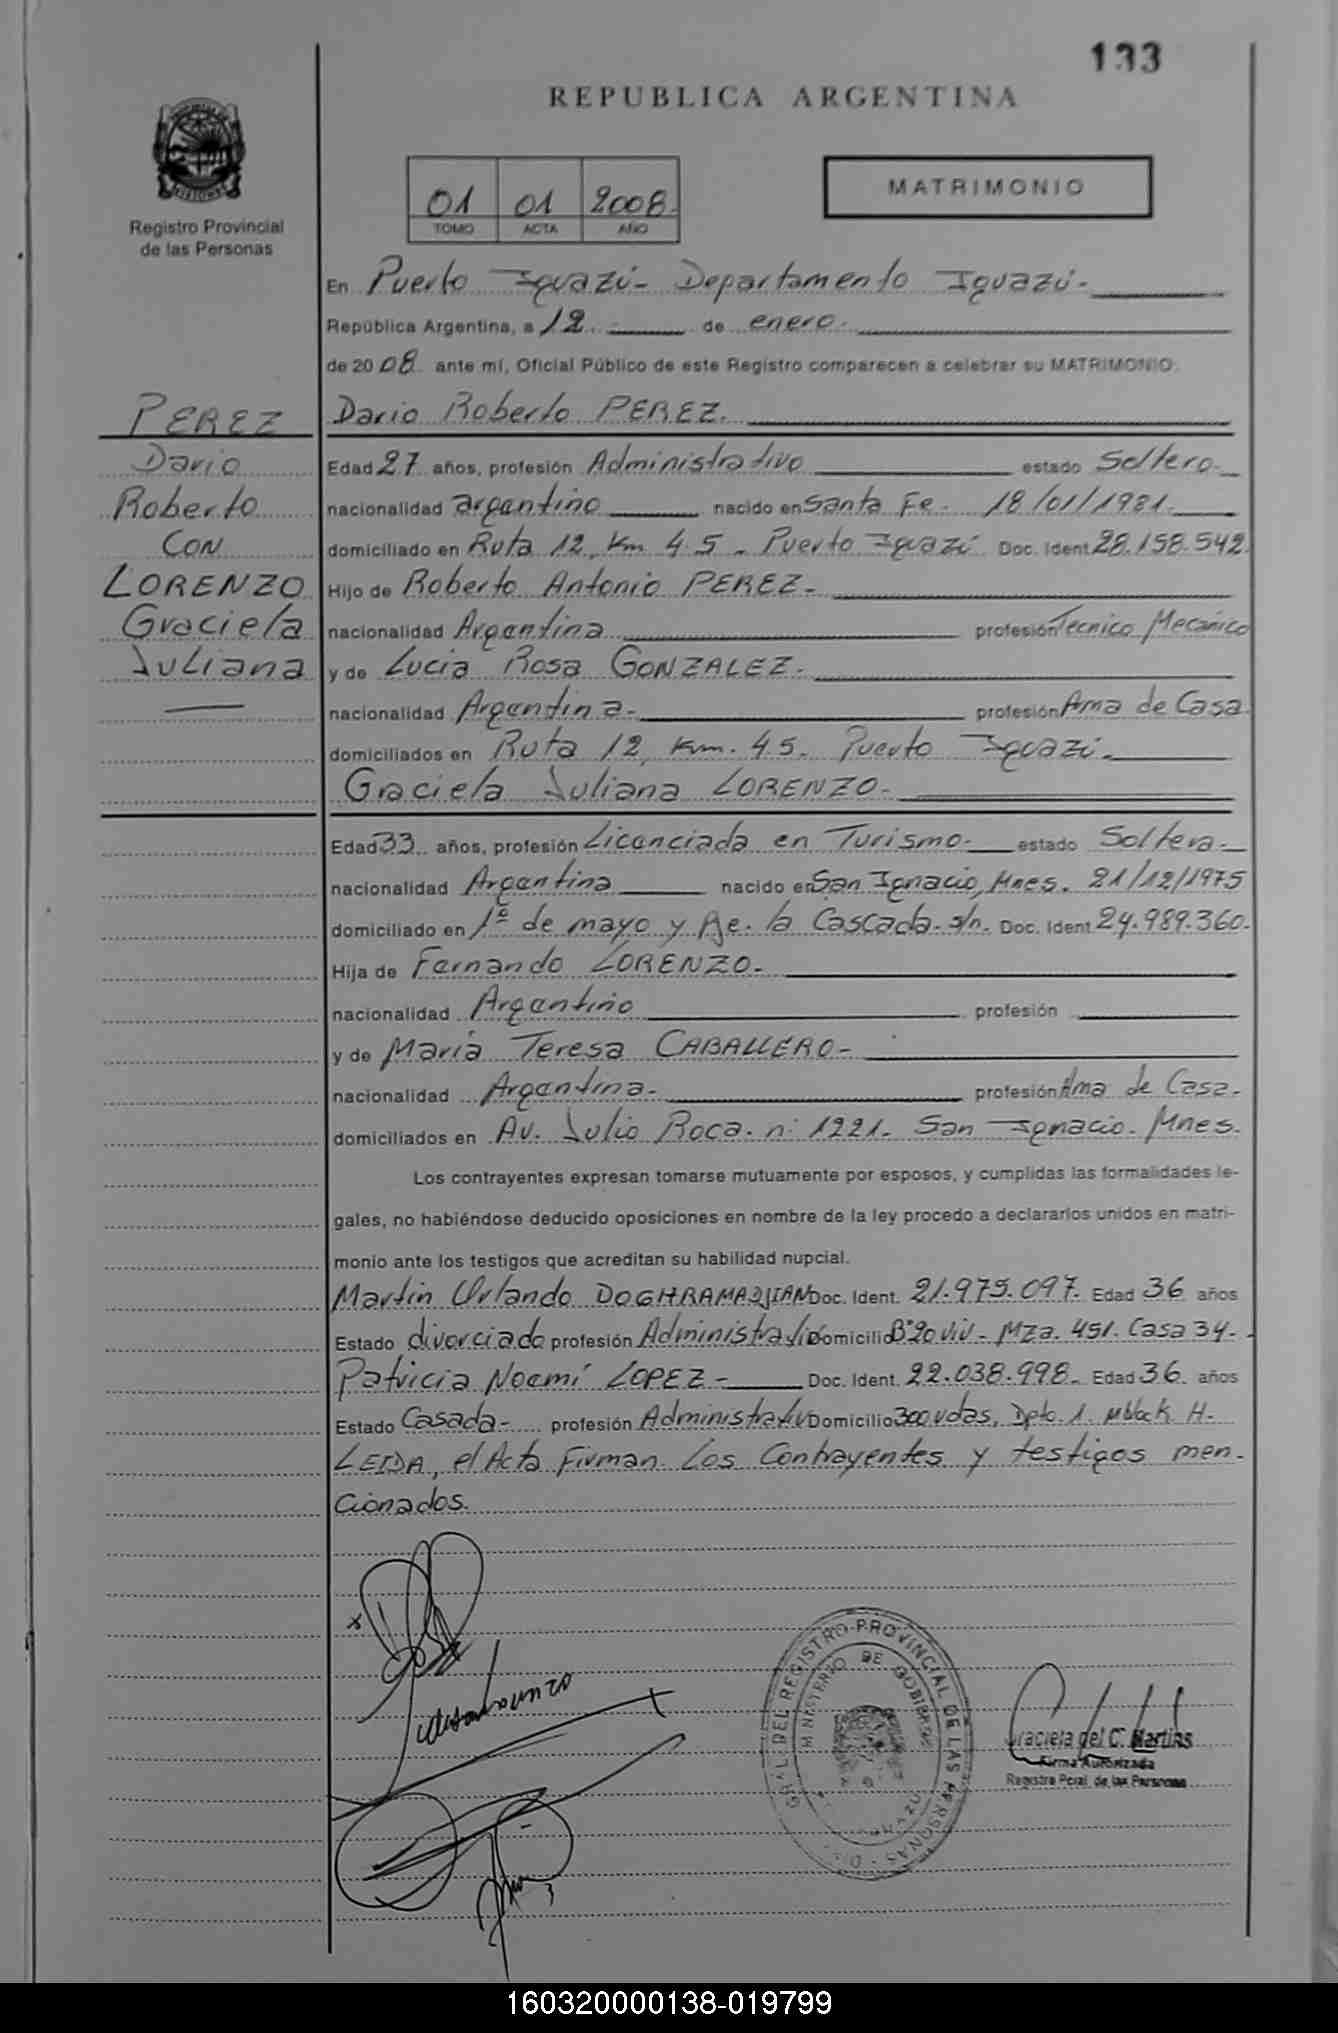 133
REPUBLICA ARGENTINA
Registro Provincial
de las Personas
01 01 2008.
TOMO ACTA AÑO
MATRIMONIO
En Puerto Iguazú- Departamento Iguazú-
República Argentina, a 12 de enero.
de 2008 ante mí, Oficial Público de este Registro comparecen a celebrar su MATRIMONIO:
PEREZ
Dario
Roberto
CON
LORENZO
Graciela
Juliana
Dario Roberto PEREZ.
Edad 27 años, profesión Administrativo estado Soltero.
nacionalidad argentino nacido en Santa Fe. 18/01/1981.
domiciliado en Ruta 12, Km 4.5 - Puerto Iguazú Doc. Ident 28.158.542.
Hijo de Roberto Antonio PEREZ-
nacionalidad Argentina profesión Tecnico Mecánico
y de Lucia Rosa GONZALEZ.
nacionalidad Argentina- profesión Ama de Casa.
domiciliados en Ruta 12, Km. 4.5. Puerto Iguazú-
Graciela Juliana LORENZO-
Edad 33 años, profesión Licenciada en Turismo- estado Soltera-
nacionalidad Argentina nacido en San Ignacio, Mnes. 21/12/1975
domiciliado en 1º de mayo y Pje. la Cascada. s/n. Doc. Ident 24.989.360.
Hija de Fernando LORENZO-
nacionalidad Argentino profesión
y de María Teresa CABALLERO-
nacionalidad Argentina- profesión Ama de Casa.
domiciliados en Av. Julio Roca. n: 1221- San Ignacio. Mnes.
Los contrayentes expresan tomarse mutuamente por esposos, y cumplidas las formalidades le-
gales, no habiéndose deducido oposiciones en nombre de la ley procedo a declararlos unidos en matri-
monio ante los testigos que acreditan su habilidad nupcial.
Martin Orlando DOGHRAMADJIAN Doc. Ident. 21.975.097. Edad 36 años
Estado divorciado profesión Administrativo Domicilio Bº20 viv- Mza. 451. Casa 34-
Patricia Noemí LOPEZ- Doc. Ident. 22.038.998. Edad 36 años
Estado Casada- profesión Administrativo Domicilio 300 vdas, Dpto. 1. Mblock H-
LEIDA, el Acta Firman Los Contrayentes y testigos men-
cionados.
GRAL. DEL REGISTRO PROVINCIAL DE LAS PERSONAS
MINISTERIO DE GOBIERNO
Graciela del C. Martins
Firma Autorizada
Registro Pcial. de las Personas
160320000138-019799